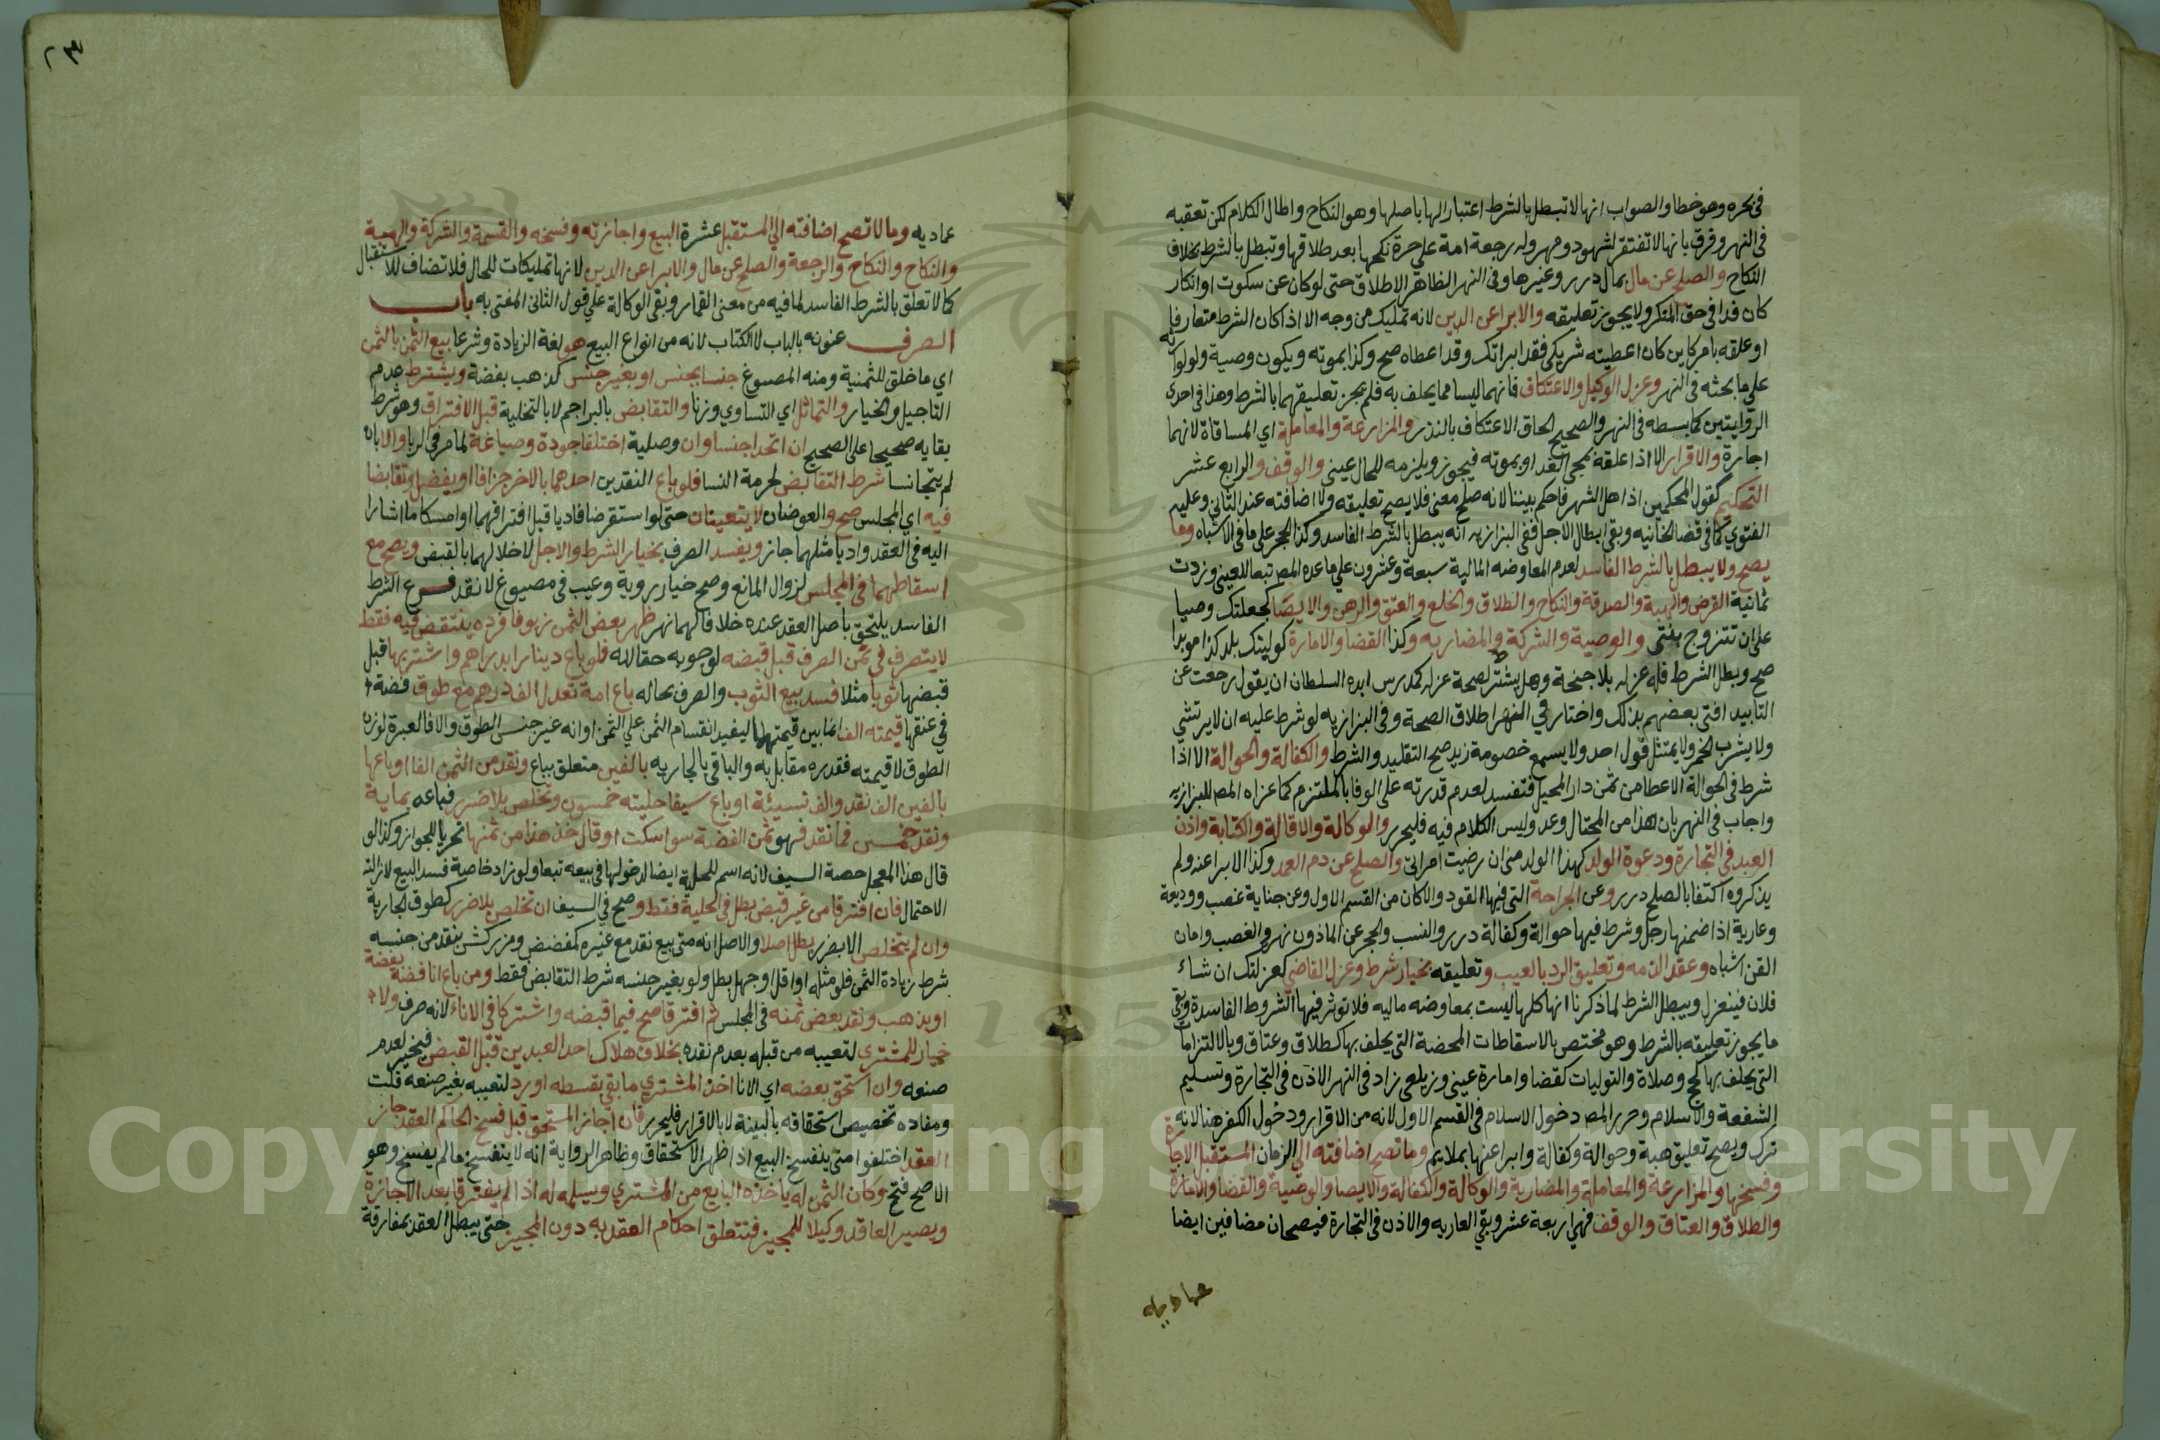 في بحره وهو خطا والصواب انها لا تبطل بالشرط اعتبارا لها باصلها وهو النكاح واطال الكلام لكن تعقبه
في النهر وفرق بانها لا تفتقر لشهود ومهر وله رجعة امة علي حرة نكحها بعد طلاقها وتبطل بالشرط بخلاف
النكاح والصلح عن مال بمال درر وغيرها وفي النهر الظاهر الاطلاق حتي لو كان عن سكوت او انكار
كان فدا في حق المنكر ولا يجوز تعليقه والابرا عن الدين لانه تمليك من وجه الا اذا كان الشرط متعارفا
او علقه بامر كاين كان اعطيته شريكي فقد ابراتك وقد اعطاه صح وكذا بموته ويكون وصية ولو لوارثه
علي ما بحثه في النهر وعزل الوكيل والاعتكاف فانهما ليسا مما يحلف به فلم يجز تعليقهما بالشرط وهذا في احدي
الروايتين كما بسطه في النهر والصحيح الحاق الاعتكاف بالنذر والمزارعة والمعاملة اي المساقاة لانهما
اجارة والاقرار الا اذا علقه بمجي الغد او بموته فيجوز ويلزمه للحال عيني والوقف والرابع عشر
التحكيم كقول المحكمين اذا هل الشهر فاحكم بيننا لانه صلح معني فلا يصح تعليقه ولا اضافته عند الثاني وعليه
الفتوي كما في قضا الخانيه وبقي ابطال الاجل ففي البزازيه انه يبطل بالشرط الفاسد وكذا الحجر علي ما في الاشباه وما
يصح ولا يبطل بالشرط الفاسد لعدم المعاوضه المالية سبعة وعشرون علي ما عده المص تبعا للعيني وزدت
ثمانية القرض والهبة والصدقة والنكاح والطلاق والخلع والعتق والرهن والايصا كجعلتك وصيا
علي ان تتزوج بنتي والوصية والشركة والمضاربه وكذا القضا والامارة كوليتك بلد كذا موبدا
صح وبطل الشرط فله عزله بلا جنحة وهل يشترط لصحة عزله كمدرس ابده السلطان ان يقول رجعت عن
التابيد افتي بعضهم بذلك واختار في النهر اطلاق الصحة وفي البزازيه لو شرط عليه ان لا يرتشي
ولا يشرب الخمر ولا يمتثل قول احد ولا يسمع خصومة زيد صح التقليد والشرط والكفالة والحوالة الا اذا
شرط في الحوالة الاعطا من ثمن دار المحيل فتفسد لعدم قدرته علي الوفا بالملتزم كما عزاه المص للبزازيه
واجاب في النهر بان هذا من المحتال وعد وليس الكلام فيه فليحرر والوكالة والاقالة والكتابة واذن
العبد في التجارة ودعوة الولد كهذا الولد مني ان رضيت امراتي والصلح عن دم العمد وكذا الابرا عنه ولم
يذكروه اكتفا بالصلح درر وعن الجراحة التي فيها القود والا كان من القسم الاول وعن جناية غصب ووديعة
وعارية اذا ضمنها رجل وشرط فيها حوالة وكفالة درر والنسب والحجر عن الماذون نهر والغصب وامان
القن اشباه وعقد الذمه وتعليق الرد بالعيب وتعليقه بخيار شرط وعزل القاضي كعزلتك ان شاء
فلان فينعزل ويبطل الشرط لما ذكرنا انها كلها ليست بمعاوضه ماليه فلا توثر فيها الشروط الفاسدة وبقي
ما يجوز تعليقه بالشرط وهو مختص بالاسقاطات المحضة التي يحلف بها كطلاق وعتاق وبالالتزامات
التي يحلف بها كحج وصلاة والتوليات كقضا وامارة عيني وزيلعي زاد في النهر الاذن في التجارة وتسليم
الشفعة والاسلام وحرر المص دخول الاسلام في القسم الاول لانه من الاقرار ودخول الكفر هنا لانه
ترك ويصح تعليق هبة وحوالة وكفالة وابرا عنها بملايم وما تصح اضافته الي الزمان المستقبل الاجارة
وفسخها والمزارعة والمعاملة والمضاربة والوكالة والكفالة والايصا والوصية والقضا والامارة
والطلاق والعتاق والوقف فهي اربعة عشر وبقي العاريه والاذن في التجارة فيصحان مضافين ايضا
عماديه
عماديه وما لا تصح اضافته الي المستقبل عشرة البيع واجازته وفسخه والقسمة والشركة والهبة
والنكاح والنكاح والرجعة والصلح عن مال والابرا عن الدين لانها تمليكات للحال فلا تضاف للاستقبال
كما لا تعلق بالشرط الفاسد لما فيه من معني القمار وبقي الوكالة علي قول الثاني المفتي به باب
الصرف عنونه بالباب لا الكتاب لانه من انواع البيع هو لغة الزيادة وشرعا بيع الثمن بالثمن
اي ما خلق للثمنية ومنه المصوغ جنسا بجنس او بغير جنس كذهب بفضة ويشترط عدم
التاجيل والخيار والتماثل اي التساوي وزنا والتقابض بالبراجم لا بالتخلية قبل الافتراق وهو شرط
بقايه صحيحا علي الصحيح ان اتحدا جنسا وان وصلية اختلفا جودة وصياغة لما مر في الربا والا بان
لم يتجانسا شرط التقابض لحرمة النسا فلو باع النقدين احدهما بالاخر جزافا او بفضل وتقابضا
فيه اي المجلس صح والعوضان لا يتعينان حتي لو استقرضا فاديا قبل افتراقهما او امسكا ما اشارا
اليه في العقد واديا مثلهما جاز ويفسد الصرف بخيار الشرط والاجل لاخلالهما بالقبض ويصح مع
اسقاطهما في المجلس لزوال المانع وصح خيار روية وعيب في مصوغ لا نقد فرع الشرط
الفاسد يلتحق باصل العقد عنده خلافا لهما نهر ظهر بعض الثمن زيوفا فرده ينتقض فيه فقط
لا يتصرف في ثمن الصرف قبل قبضه لوجوبه حقا لله فلو باع دينارا بدراهم واشتري بها قبل
قبضها ثوبا مثلا فسد بيع الثوب والصرف بحاله باع امة تعدل الف درهم مع طوق فضة
في عنقها قيمته الف انما بين قيمتهما ليفيد انقسام الثمن علي الثمن او انه غير جنس الطوق والا فالعبرة لوزن
الطوق لا قيمته فقدره مقابل به والباقي بالجاريه بالفين متعلق بباع ونقد من الثمن الفا او باعها
بالفين الف نقد والف نسيئة او باع سيفا حليته خمسون وتخلص بلا ضرر فباعه بماية
ونقد خمسين فما نقد فهو ثمن الفضة سوا سكت او قال خذ هذا من ثمنها تحريا للجواز وكذا لو
قال هذا المعجل حصة السيف لانه اسم للحلية ايضا لدخولها في بيعه تبعا ولو زاد خاصة فسد البيع لازالته
الاحتمال فان افترقا من غير قبض بطل في الحلية فقط وصح في السيف ان تخلص بلا ضرر كطوق الجارية
وان لم يتخلص الا بضرر بطل اصلا والاصل انه متي بيع نقد مع غيره كمفضض ومزركش بنقد من جنسه
شرط زيادة الثمن فلو مثله او اقل او جهل بطل ولو بغير جنسه شرط التقابض فقط ومن باع انا فضة بفضة
او بذهب ونقد بعض ثمنه في المجلس ثم افترقا صح فيما قبضه واشتركا في الاناء لانه صرف ولا
خيار للمشتري لتعيبه من قبله بعدم نقده بخلاف هلاك احد العبدين قبل القبض فيخير لعدم
صنعه وان استحق بعضه اي الانا اخذ المشتري ما بقي بقسطه او رد لتعيبه بغير صنعه قلت
ومفاده تخصيص استحقاقه بالبينة لا بالاقرار فليحرر فان اجاز المستحق قبل فسخ الحاكم العقد جاز
العقد اختلفوا متي ينفسخ البيع اذا ظهر الاستحقاق وظاهر الرواية انه لا ينفسخ ما لم يفسخ وهو
الاصح فتح وكان الثمن له ياخذه البايع من المشتري ويسلمه له اذا لم يفترقا بعد الاجازة
ويصير العاقد وكيلا للمجيز فتتعلق احكام العقد به دون المجيز حتي يبطل العقد بمفارقة
Copyright © King Saud University
195